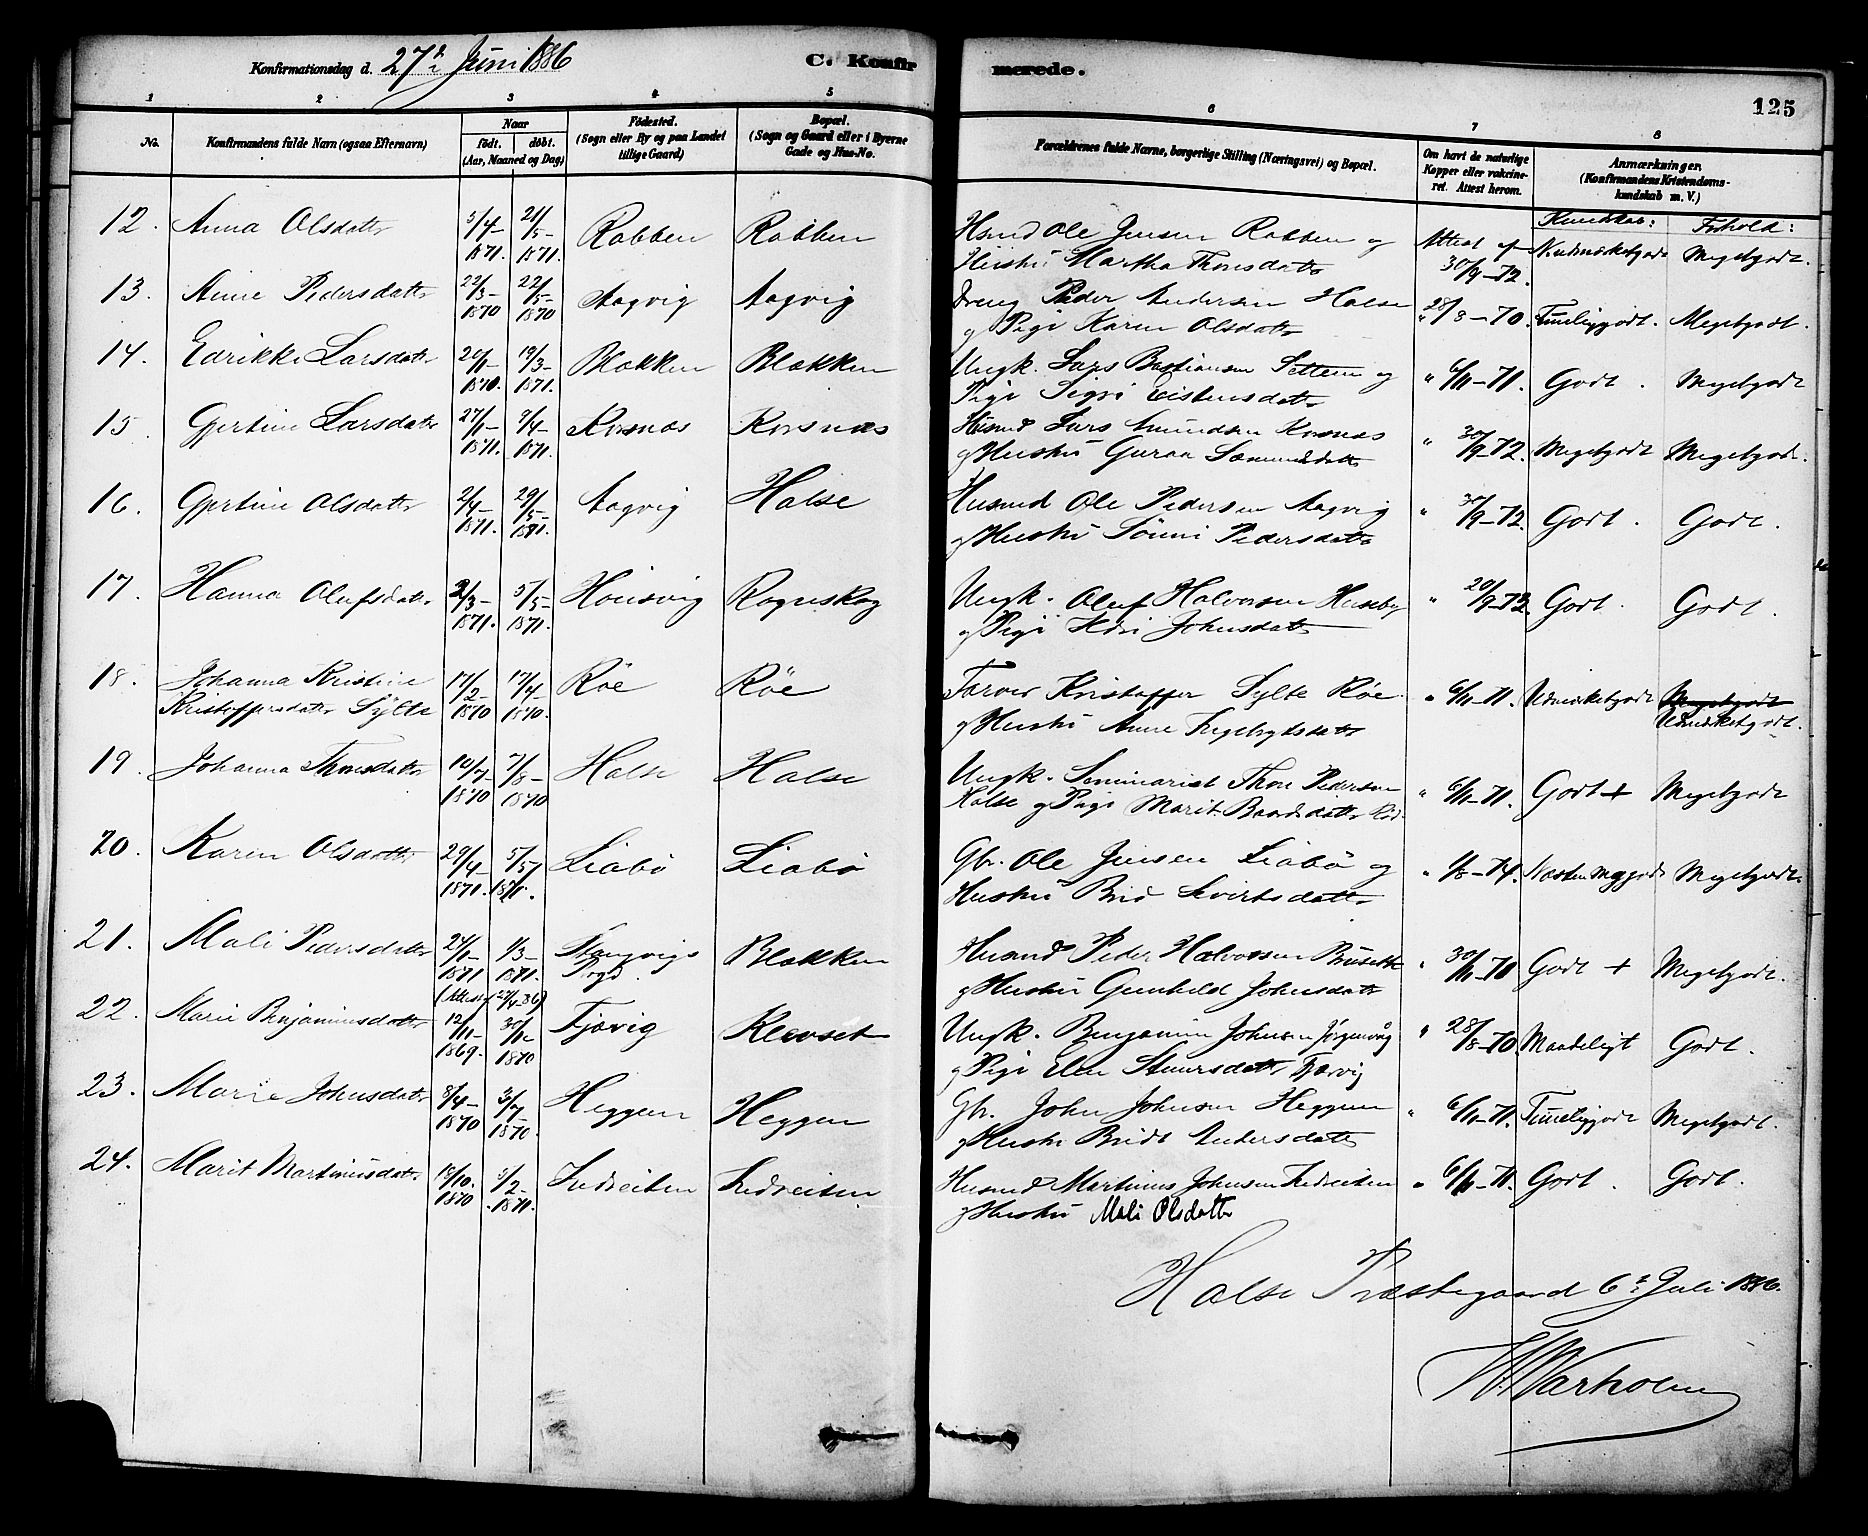 Konfirmationsdag d. 27de Juni 1886
C. Konfirmerede.
125
1 2 3 4 5 6 7 8
No.
Konfirmandens fulde Navn (ogsaa Efternavn)
Naar
født. døbt.
(Aar, Maaned og Dag)
Fødested.
(Sogn eller By og paa Landet
tillige Gaard)
Bopæl.
(Sogn og Gaard eller i Byerne
Gade og Hus-No.
Forældrenes fulde Navne, borgerlige Stilling (Næringsvei) og Bopæl.
Om havt de naturlige
Kopper eller vakcine-
ret. Attest herom.
Anmærkninger,
(Konfirmandens Kristendoms-
kundskab m. V.)
Kundskab: Forhold:
12. Anna Olsdatter 5/4-1871. 21/5-1871. Rabben Rabben Husmd Ole Jensen Rabben og Attest af 30/9-72. Megetgodt.
Hustru Martha Thoresdatter
13. Anne Pedersdatter 22/3-1870 22/5-1870 Aagvig Aagvig Dreng Peder Andersen Halse " 28/8-70. Temeliggodt. Megetgodt.
og Pige Karen Olsdatter
14. Edrikke Larsdatter 1870. 19/3-1871. Blekken Blekken Ungk. Lars Bastiansen Settem og " 6/11-71. Godt. Megetgodt
Pige Sigri Eistensdatter
15. Gjertine Larsdatter 27/1-1871. 9/4-1871. Korsnæs Korsnæs Husmd Lars Amundsen Korsnæs " 30/9-72. Megetgodt Megetgodt.
og Hustru Guraa Sæmundsdatter
16. Gjertine Olsdatter 2/4-1871. 29/5-1871. Aagvig Halse Husmd Ole Pedersen Aagvig " 30/9-72. Godt. Godt.
og Hustru Sønni Pedersdatter
17. Hanna Olufsdatter 2/3-1871. 5/5-1871. Honsvig Rognskog Ungk. Oluf Halvorsen Huseby " 20/9-73. Godt. Godt.
og Pige Johnsdatter
18. Johanna Kristine 17/2-1870 17/4-1870. Røe Røe Farver Kristoffer Sylte Røe. " 6/11-71. Udmærketgodt Megetgodt
Kristoffersdatter Sylte og Hustru Anne Ingebrigtsdatter Udmærketgodt.
19. Johanna Thoresdatter 10/7-1870 7/8-1870 Halse Halse Ungk. Seminarist Thore Pedersen " 6/11-71. Godt + Megetgodt
Halse og Pige Marit Baardsdatter Røe.
20. Karen Olsdatter 29/4-1871. 5/5-1871. Liabø Liabø Gbr. Ole Jensen Liabø og " 1/8-74. Næsten meg. godt Megetgodt.
Hustru Brit Sivertsdatter
21. Mali Pedersdatter 24/1-1871 1/3-1871. Stangvigs Blekken Husmd Peder Halvorsen Busett " 30/11-70 Godt + Megetgodt.
(Attest 27/4 86) Prgd. og Hustru Gunhild Johnsdatter
22. Marie Benjaminsdatter 12/11-1869. 30/1-1870 Fjærvig Kleevset Ungk. Benjamin Johnsen Jørgenvåg " 28/8-70. Maadeligt Godt.
og Pige Elen Sturesdatter Fjærvig
23. Marie Johnsdatter 8/4-1870 3/7-1870. Heggem Heggem Gbr. John Johnsen Heggem " 6/11-71. Temeliggodt Megetgodt.
og Hustru Bridt Andersdatter
24. Marit Martinusdatter 18/10.1870 5/2-1871. Ledreiten Ledreiten Husmd Martinus Johnsen Ledreiten " 6/11-71. Godt. Godt.
og Hustru Mali Olsdatter
Halse Præstegaard 6te Juli 1886.
W. Warholm